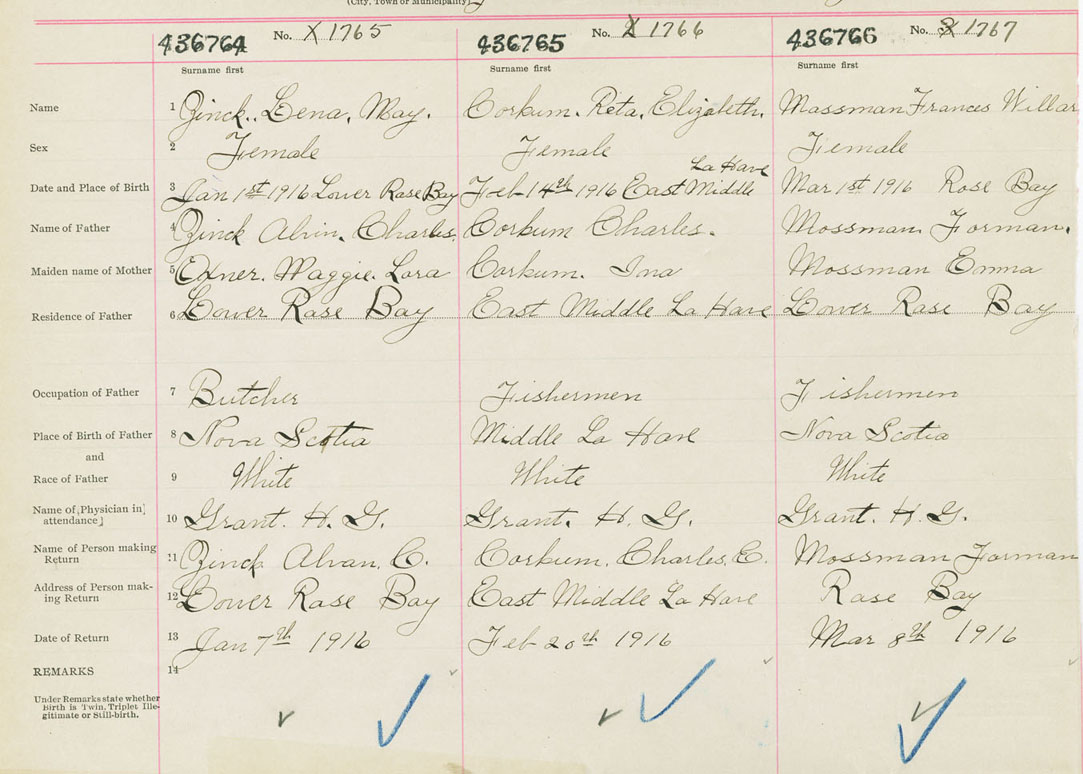 (City, Town or Municipality)
436764 No. X 1765 436765 No. 2 1766 436766 No. 3 1767
Surname first Surname first Surname first
Name 1 Zinck, Lena, May. Corkum. Reta, Elizabeth. Mossman Frances Willar
Sex 2 Female Female Female
La Have
Date and Place of Birth 3 Jan 1st 1916 Lower Rose Bay Feb 14th 1916 East Middle Mar 1st 1916 Rose Bay
Name of Father 4 Zinck Alvin. Charles. Corkum Charles. Mossman. Forman.
Maiden name of Mother 5 Oxner. Maggie. Lora Corkum. Ina Mossman Emma
Residence of Father 6 Lower Rose Bay East Middle La Have Lower Rose Bay
Occupation of Father 7 Butcher Fishermen Fishermen
Place of Birth of Father 8 Nova Scotia Middle La Have Nova Scotia
and
Race of Father 9 White White White
Name of [Physician in
attendance] 10 Grant. H. G. Grant. H. G. Grant. H. G.
Name of Person making
Return 11 Zinck Alvan, C. Corkum, Charles, E. Mossman Forman
Address of Person mak-
ing Return 12 Lower Rose Bay East Middle La Have Rose Bay
Date of Return 13 Jan 7th 1916 Feb 20th 1916 Mar 8th 1916
REMARKS 14
Under Remarks state whether
Birth is Twin, Triplet Ille-
gitimate or Still-birth.